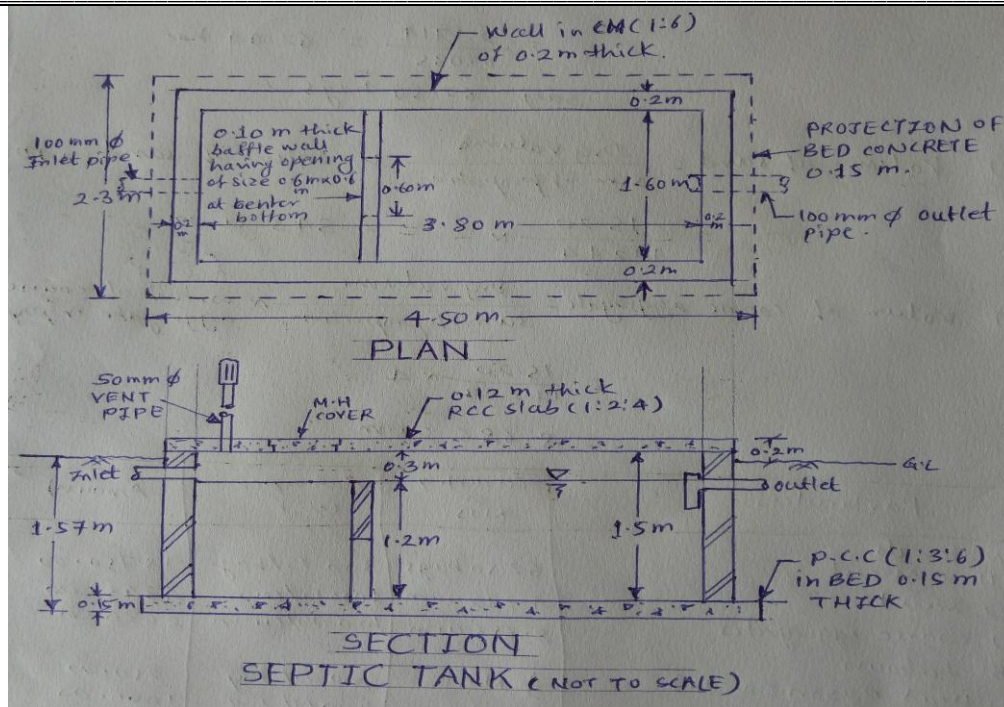 Wall in CM (1:6)
of 0.2 m thick.
0.2m
100 mm ϕ
Inlet pipe.
2.3 m
0.10 m thick
baffle wall
having opening
of size 0.6mx0.6
m
at benter
bottom
0.60m
1.60m
PROJECTION OF
BED CONCRETE
0.15 m.
100 mm ϕ outlet
pipe.
0.2
m
3.80 m
0.2
m
0.2m
4.50 m
PLAN
50mm ϕ
VENT
PIPE
M.H
COVER
0.12 m thick
RCC slab (1:2:4)
0.2m
0.3m
G.L
Inlet
outlet
1.57m
1.2m
1.5m
P.C.C (1:3:6)
in BED 0.15 m
THICK
0.15m
SECTION
SEPTIC TANK (NOT TO SCALE)